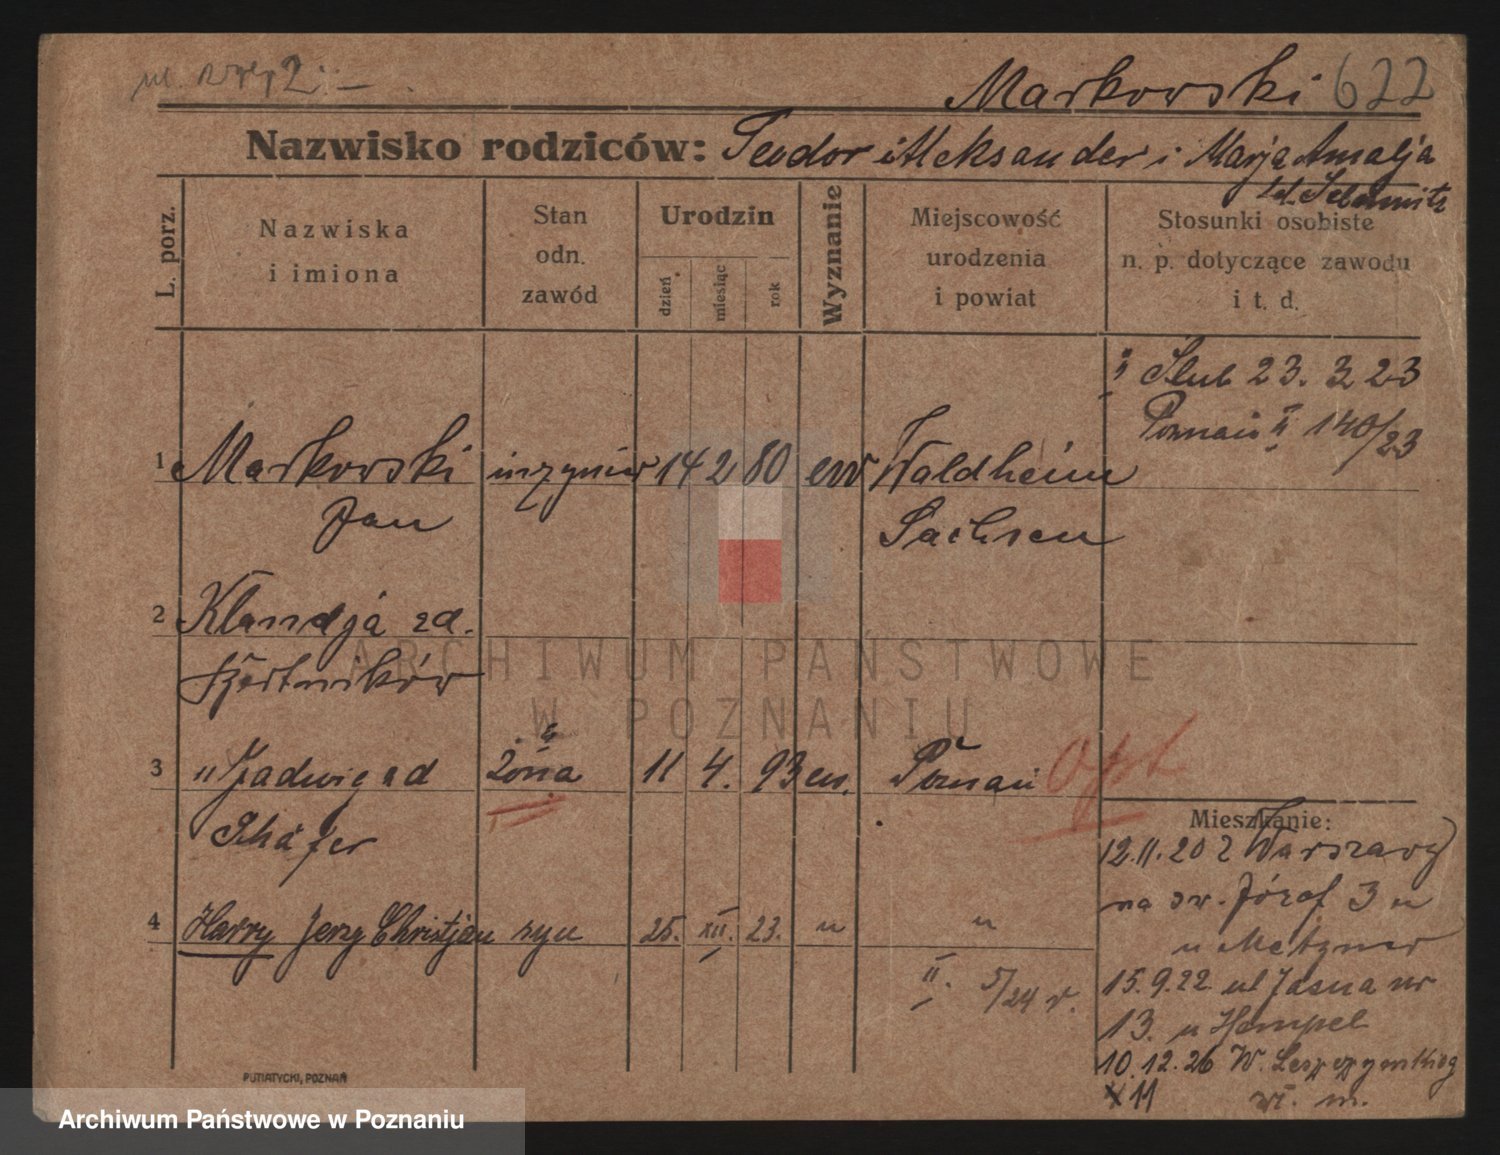 Markowski 622
Nazwisko rodziców: Teodor i Aleksander i Marja Amalja
L. porz.
Nazwiska
i imiona
Stan
odn.
zawód
Urodzin
dzień
miesiąc
rok
Wyznanie
Miejscowość
urodzenia
i powiat
Stosunki osobiste
n. p. dotyczące zawodu
i t. d.
Ślub 23. 3 23
Poznań II 140/23
1 Markowski inżynier 14 2 80 ew Waldheim
Jan Sachsen
2 Klaudja zd.
ARCHIWUM PAŃSTWOWE
W POZNANIU
3 " Jadwiga d żona 11 4. 93 ew. Poznań opt
Schäfer
4 Harry Jerzy Christjan syn 25. XII. 23. " "
II. 5/24 r.
Mieszkanie:
12.11.20 z Warszawy
na św. Józef 3 u
u Metzner
15.9.22 ul Jasna nr
13. u Hempel
10.12.26 W.
X 11 m.
PUTIATYCKI, POZNAŃ
Archiwum Państwowe w Poznaniu